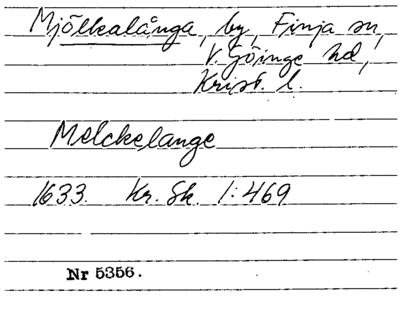 Mjölkalånga, by, Finja sn,
V. Göinge hd,
Krist. l.
Melckelange
1633. Kr. Sk. 1:469
Nr 5356.